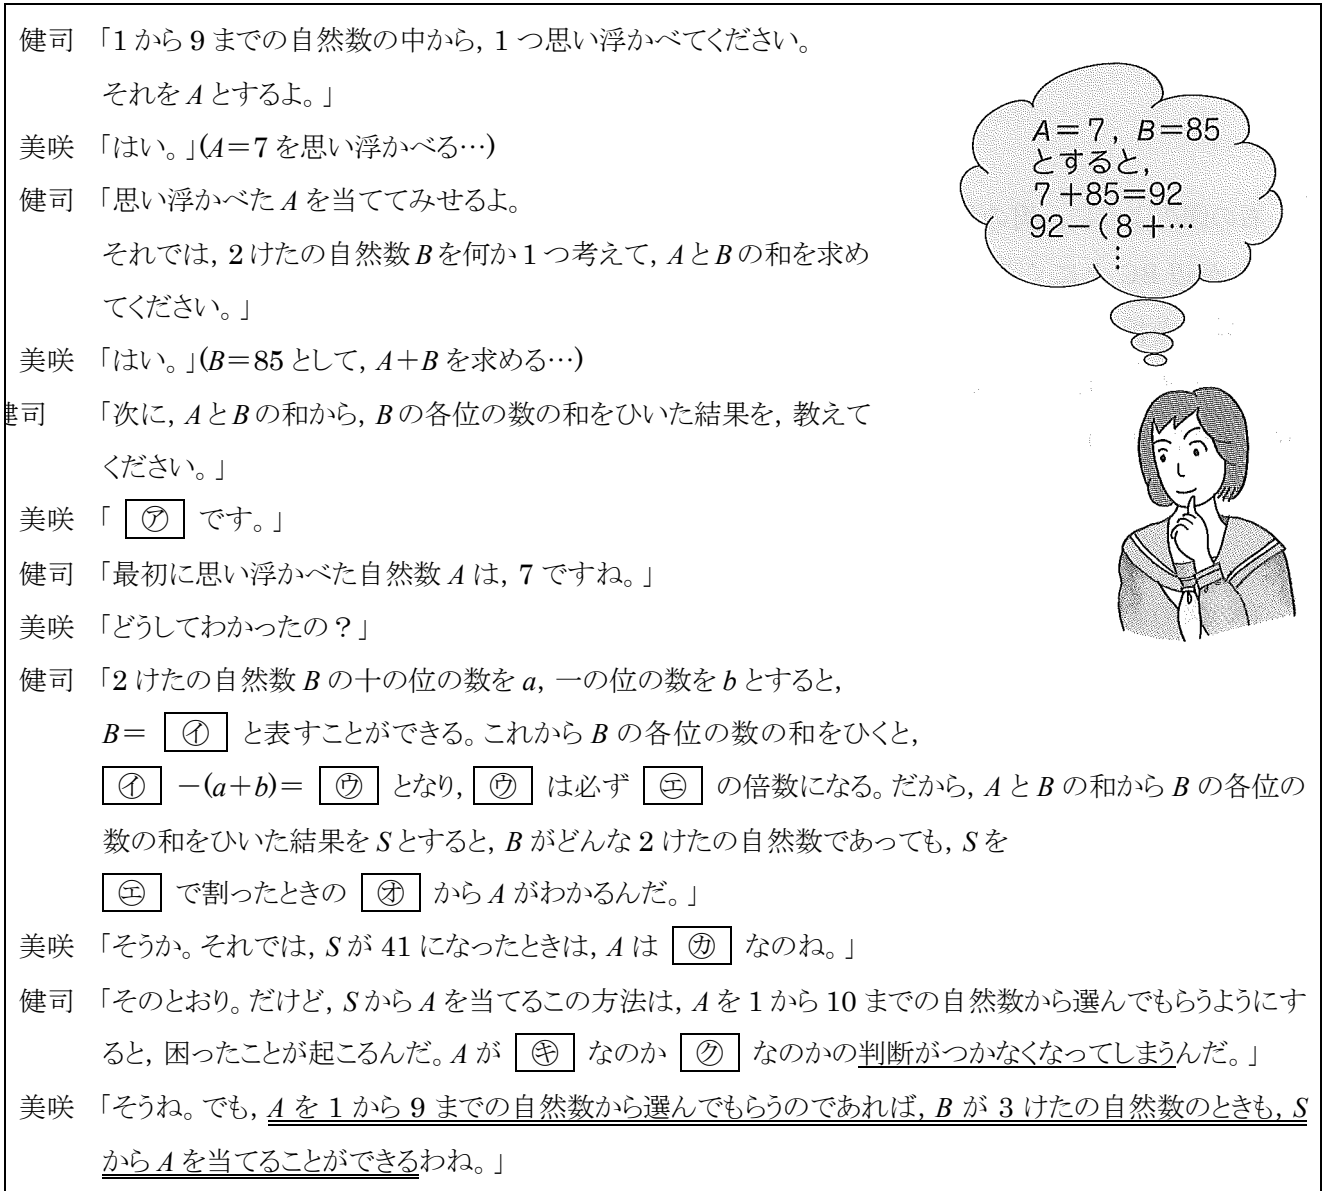 健司 「1から9までの自然数の中から, 1つ思い浮かべてください。
それをAとするよ。」
美咲 「はい。」(A=7を思い浮かべる…)
健司 「思い浮かべたAを当ててみせるよ。
それでは, 2けたの自然数Bを何か1つ考えて, AとBの和を求め
てください。」
美咲 「はい。」(B=85として, A+Bを求める…)
健司 「次に, AとBの和から, Bの各位の数の和をひいた結果を, 教えて
ください。」
美咲 「 ㋐ です。」
健司 「最初に思い浮かべた自然数Aは, 7ですね。」
美咲 「どうしてわかったの?」
健司 「2けたの自然数Bの十の位の数をa, 一の位の数をbとすると,
B= ㋑ と表すことができる。これからBの各位の数の和をひくと,
㋑ -(a+b)= ㋒ となり, ㋒ は必ず ㋓ の倍数になる。だから, AとBの和からBの各位の
数の和をひいた結果をSとすると, Bがどんな2けたの自然数であっても, Sを
㋓ で割ったときの ㋔ からAがわかるんだ。」
美咲 「そうか。それでは, Sが41になったときは, Aは ㋕ なのね。」
健司 「そのとおり。だけど, SからAを当てるこの方法は, Aを1から10までの自然数から選んでもらうようにす
ると, 困ったことが起こるんだ。Aが ㋖ なのか ㋗ なのかの判断がつかなくなってしまうんだ。」
美咲 「そうね。でも, Aを1から9までの自然数から選んでもらうのであれば, Bが3けたの自然数のときも, S
からAを当てることができるわね。」
A=7, B=85
とすると,
7+85=92
92-(8+…
⋮